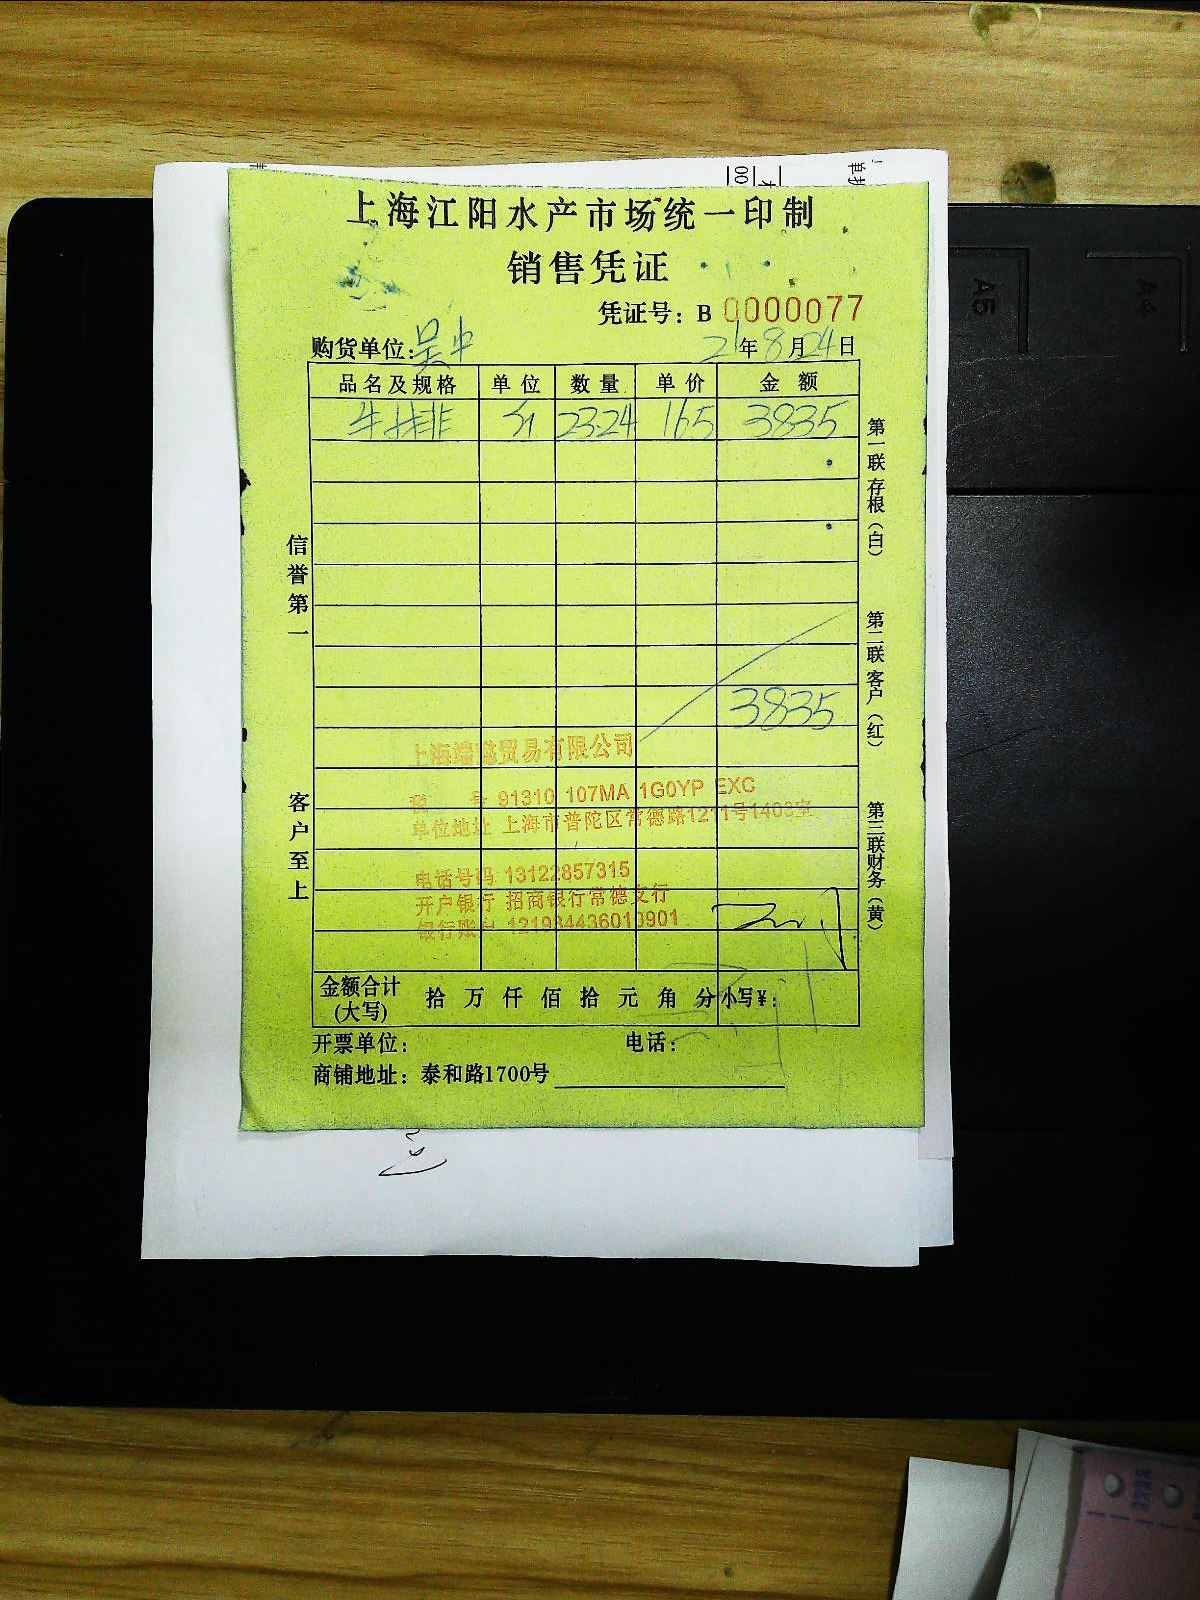 上海江阳水产市场统一印制
销售凭证
凭证号：B 0000077
购货单位：吴中 21年8月24日
品名及规格 单位 数量 单价 金额
牛排 23.24 165 3835
3835
信誉第一
客户至上
第一联存根（白）
第二联客户（红）
第三联财务（黄）
贸易有限公司
税 号 91310 107MA 1G0YP EXC
单位地址 上海市普陀区常德路1211号1403室
电话号码 13122857315
开户银行 招商银行常德支行
银行账户
金额合计 拾 万 仟 佰 拾 元 角 分 小写¥：
（大写）
开票单位： 电话：
商铺地址：泰和路1700号
A5
A4